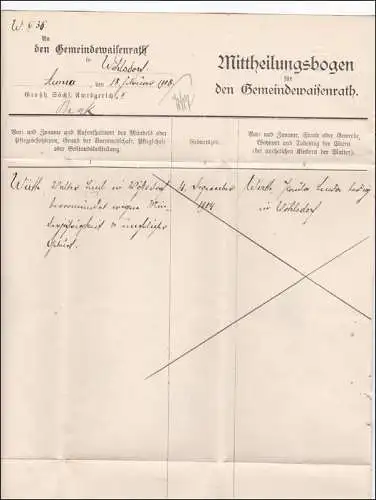 W 636
An
den Gemeindewaisenrath
in Wöhlsdorf
Auma, den 18. Februar 1908.
Großh. Sächs. Amtsgericht
Mittheilungsbogen
für
den Gemeindewaisenrath.
Vor- und Zuname und Aufenthaltsort des Mündels oder
Pfleglings, Grund der Vormundschaft, Pflegschaft
oder Beistandsbestellung.
Geburtszeit.
Vor- und Zuname, Stand oder Gewerbe,
Wohnort und Todestag der Eltern
(bei unehelichen Kindern der Mutter).
1
2
3
Würth Walter in Wöhlsdorf
bevormundet wegen Min-
derjährigkeit u. unehelicher
Geburt.
4. Dezember
Würth
in Wöhlsdorf